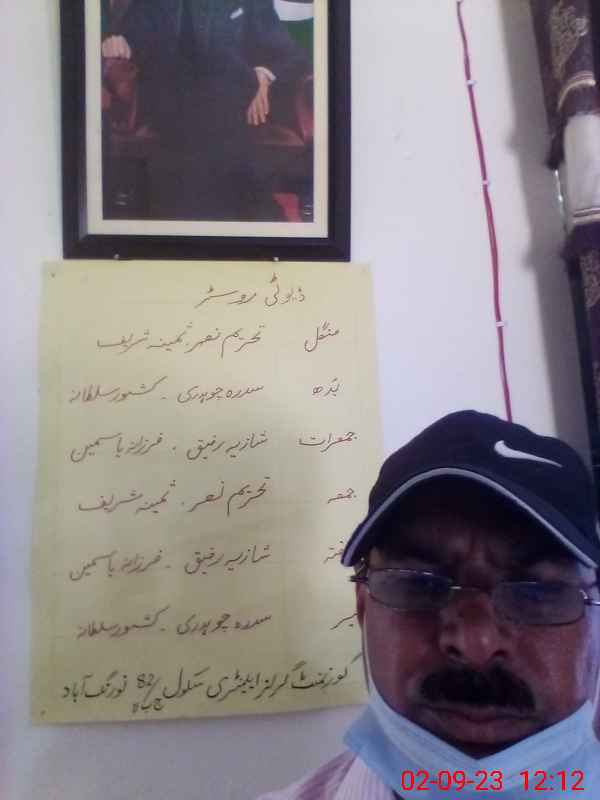 ڈیوٹی روسٹر
منگل تحریم نصر. ثمینہ شریف
بدھ سدرہ چوہدری - کشور سلطانہ
جمعرات شازیہ رفیق - فرزانہ یاسمین
جمعہ تحریم نصر. ثمینہ شریف
فتہ شازیہ رفیق - فرزانہ یاسمین
یر سدرہ چوہدری - کشور سلطانہ
گورنمنٹ گرلز ایلمنٹری سکول 82 نورنگ آباد
02-09-23 12:12